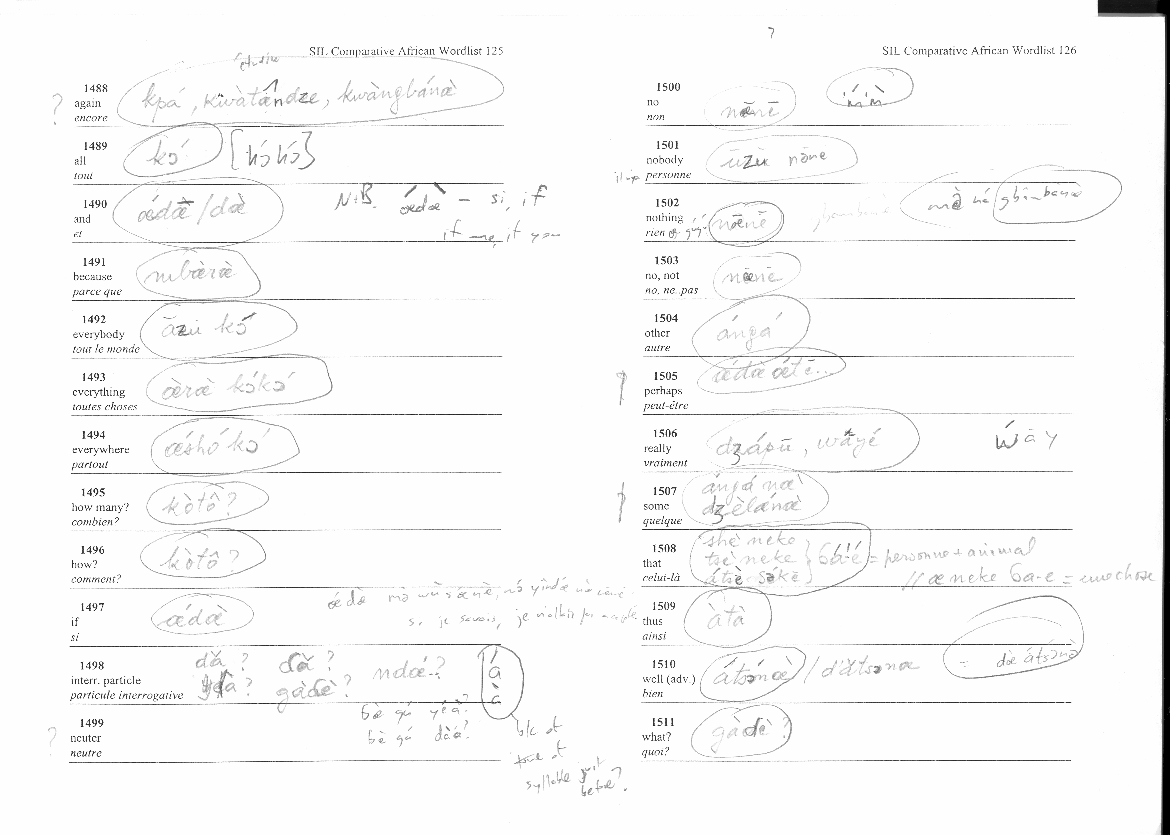 SIL Comparative African Wordlist 125
1488
again
encore
? kpá, kwàtândze, kwàngbánæ̀
1489
all
tout
kɔ́ [kɔ́ kɔ́]
1490
and
et
ǽdǣ /dæ̀ N.B. ǽdæ̀ - si, if
if me, if you
1491
because
parce que
mbæ̀ræ̀
1492
everybody
tout le monde
āzu kɔ́
1493
everything
toutes choses
æ̀ræ̀ kɔ́kɔ́
1494
everywhere
partout
ǽshó kɔ́
1495
how many?
combien?
kòtô?
1496
how?
comment?
kòtô?
1497
if
si
ǽdæ̀
si je savais, je
1498
interr. particle
particule interrogative
dǎ? dæ̌? ndǽ? á
dà? gàdè? à
bè gú yéà?
bè gú dàá?
1499
neuter
neutre
?
b/c of
tone of
syllable just
before?
7
SIL Comparative African Wordlist 126
1500
no
non
nēnē ḿ̀m
1501
nobody
personne
ūzù nāne
1502
nothing
rien
nœ̄nē
1503
no, not
no, ne..pas
nœ̄nē
1504
other
autre
ángá
1505
perhaps
peut-être
ǽdæ̀ ǽtē...
1506
really
vraiment
dʒápū, wāyé wāy
1507
some
quelque
ángá næ̀
dʒèlánæ̀
1508
that
celui-là
shè neke
tsè neke } ɓa-é = personne + animal
átsè sə́kē // æ neke ɓa-e = une chose
1509
thus
ainsi
àtà
1510
well (adv.)
bien
átsɔ́næ̀ / d'átsɔnæ = dæ átsɔnæ̀
1511
what?
quoi?
gàdè?